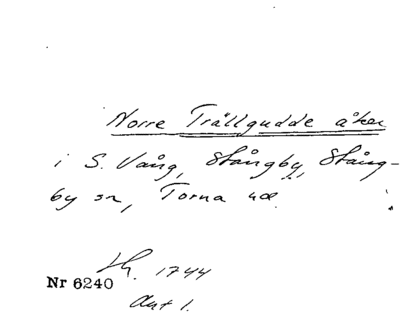 Norre Trållgudde åker
i S. Vång, Stångby, Stång-
by sn, Torna hd.
1744
Nr 6240
Akt 1.